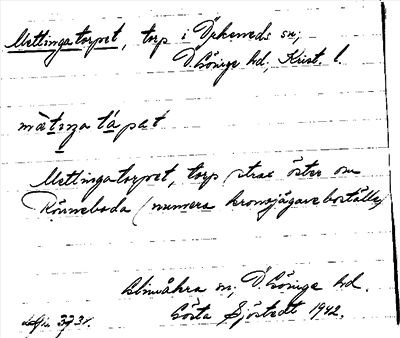 Mettingatorpet, torp i Örkeneds sn;
Ö. Göinge hd; Krist. l.
mætiŋa tápet
Mettingatorpet, torp strax öster om
Rönneboda (numera kronojägareboställe)
Glimåkra sn; Ö. Göinge hd.
Gösta Sjöstedt 1942.